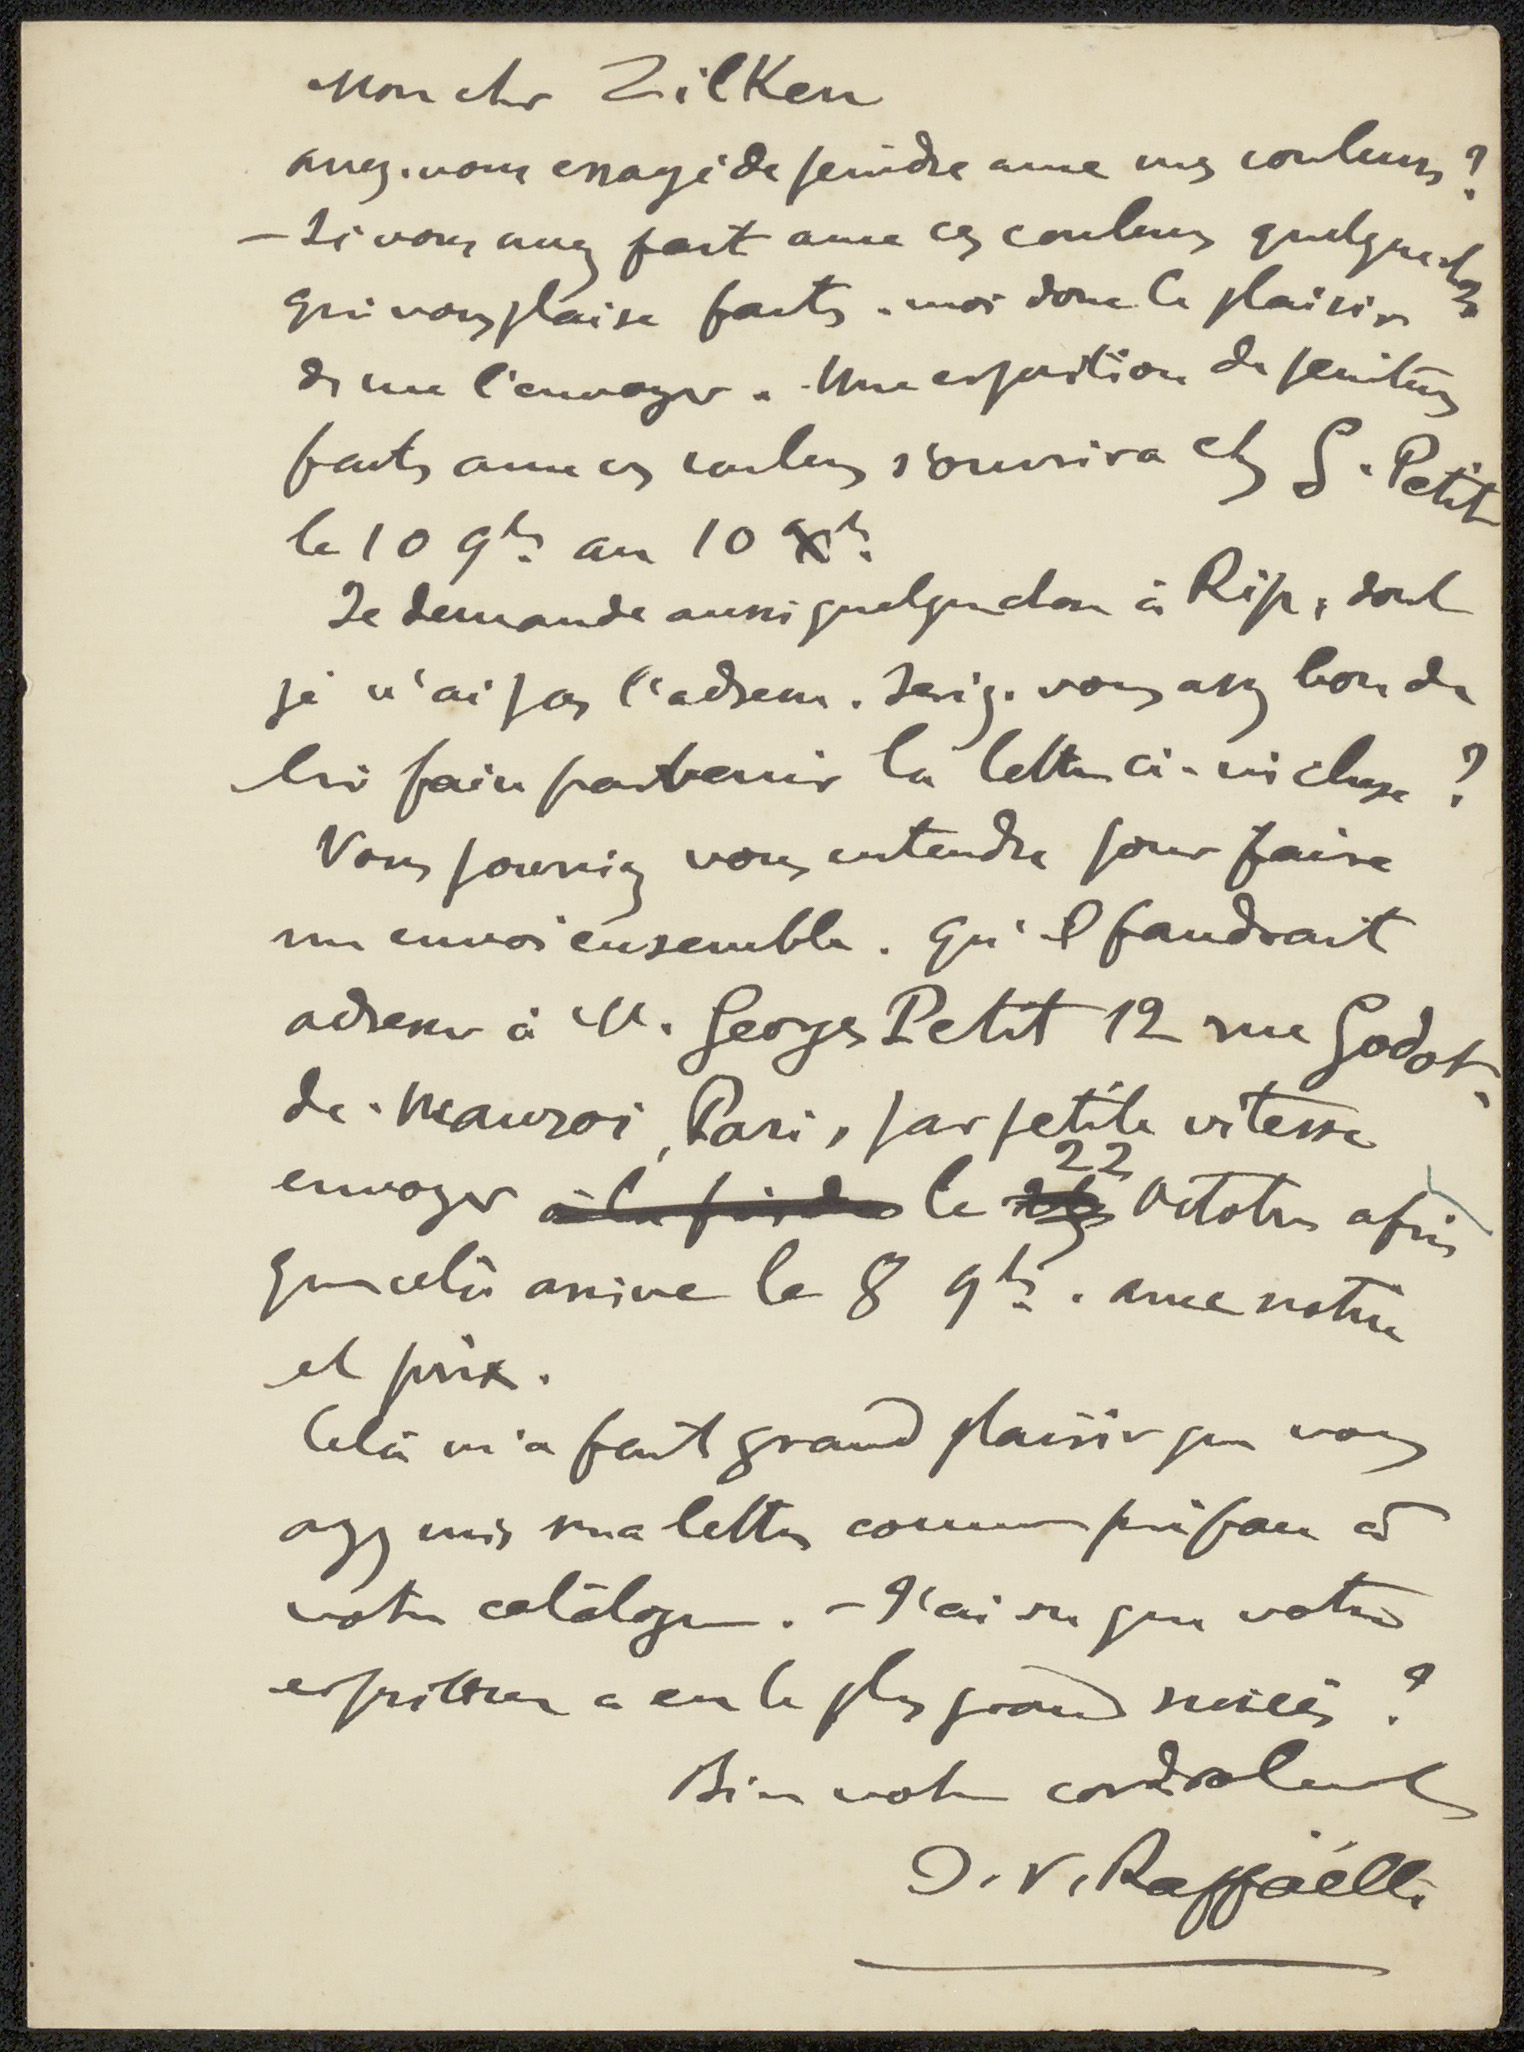 Mon cher Zilken
avez-vous essayé de peindre avec mes couleurs ?
— Si vous avez fait avec ces couleurs quelque chose
qui vous plaise faites-moi donc le plaisir
de me l'envoyer. Une exposition de peintures
faites avec ces couleurs s'ouvrira chez G. Petit
le 10 9bre au 10 Xbre.
Je demande aussi quelque chose à Rip, dont
je n'ai pas l'adresse. Seriez-vous assez bon de
lui faire parvenir la lettre ci-incluse ?
Vous pourriez vous entendre pour faire
un envoi ensemble. qu'il faudrait
adresser à M. Georges Petit 12 rue Godot-
de-Mauroi, Paris, par petite vitesse
envoyer à la fin de le 22 Octobre afin
que celà arrive le 8 9bre. avec notice
et prix.
Celà m'a fait grand plaisir que vous
ayez mis ma lettre comme préface à
votre catalogue. — J'ai su que votre
exposition a eu le plus grand succès ?
Bien votre cordialement
J. F. Raffaëlli